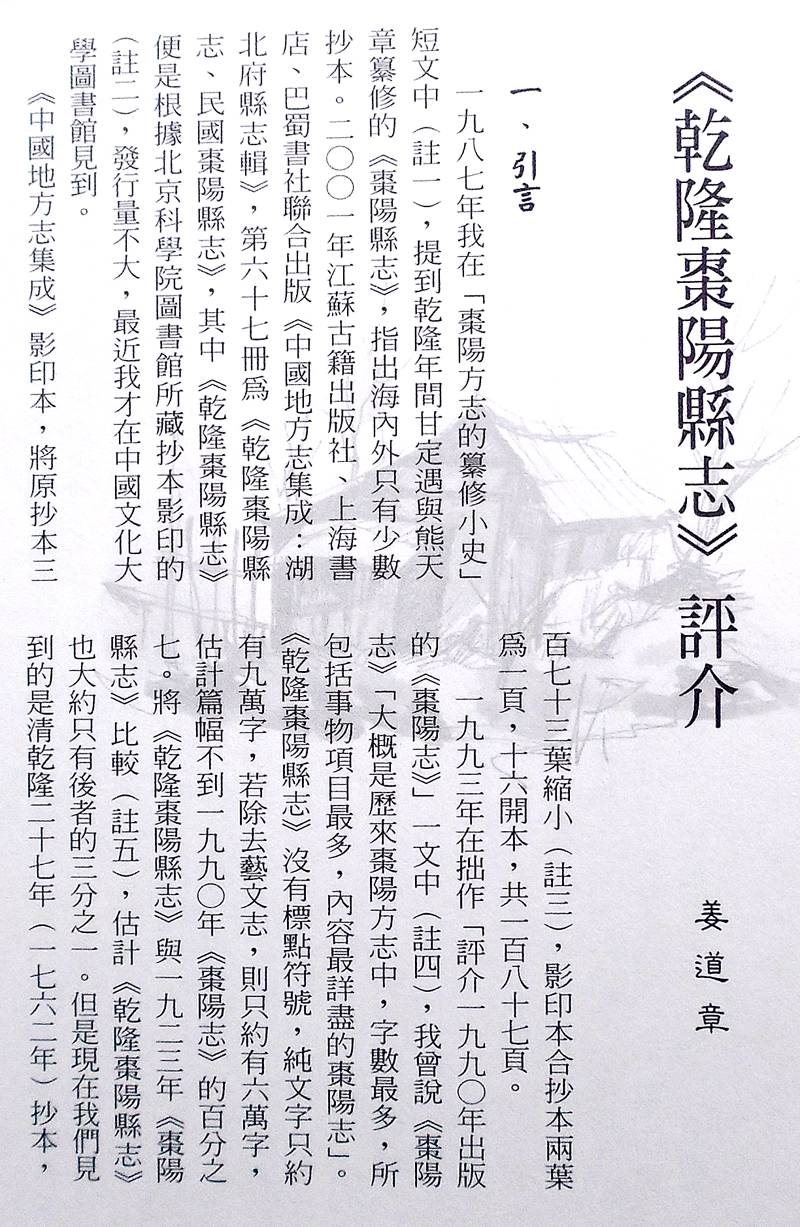 《乾隆棗陽縣志》評介
姜道章
一、引言
一九八七年我在「棗陽方志的纂修小史」
短文中（註一），提到乾隆年間甘定遇與熊天
章纂修的《棗陽縣志》，指出海內外只有少數
抄本。二〇〇一年江蘇古籍出版社、上海書
店、巴蜀書社聯合出版《中國地方志集成：湖
北府縣志輯》，第六十七冊爲《乾隆棗陽縣
志、民國棗陽縣志》，其中《乾隆棗陽縣志》
便是根據北京科學院圖書館所藏抄本影印的
（註二），發行量不大，最近我才在中國文化大
學圖書館見到。
《中國地方志集成》影印本，將原抄本三
百七十三葉縮小（註三），影印本合抄本兩葉
爲一頁，十六開本，共一百八十七頁。
一九九三年在拙作「評介一九九〇年出版
的《棗陽志》」一文中（註四），我曾說《棗陽
志》「大概是歷來棗陽方志中，字數最多，所
包括事物項目最多，內容最詳盡的棗陽志」。
《乾隆棗陽縣志》沒有標點符號，純文字只約
有九萬字，若除去藝文志，則只約有六萬字，
估計篇幅不到一九九〇年《棗陽志》的百分之
七。將《乾隆棗陽縣志》與一九二三年《棗陽
縣志》比較（註五），估計《乾隆棗陽縣志》
也大約只有後者的三分之一。但是現在我們見
到的是清乾隆二十七年（一七六二年）抄本，